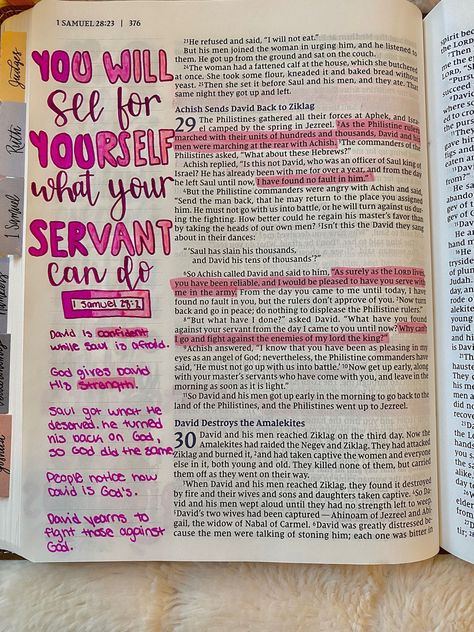 1 SAMUEL 28:23 | 376
YOU WILL
see for
YOURSELF
what your
SERVANT
can do
1 Samuel 28:2
David is confident
while Saul is afraid.
God gives David
His strength.
Saul got what he
deserved. he turned
his back on God,
so God did the same
People notice how
David is God's.
David yearns to
fight those against
God.
Judges
Ruth
1 Samuel
Joshua
23He refused and said, "I will not eat."
But his men joined the woman in urging him, and he listened
to them. He got up from the ground and sat on the couch.
24The woman had a fattened calf at the house, which she butchered
at once. She took some flour, kneaded it and baked bread without
yeast. 25Then she set it before Saul and his men, and they ate. That
same night they got up and left.
Achish Sends David Back to Ziklag
29 The Philistines gathered all their forces at Aphek, and Israel
camped by the spring in Jezreel. 2As the Philistine rulers
marched with their units of hundreds and thousands, David and his
men were marching at the rear with Achish. 3The commanders of
the Philistines asked, "What about these Hebrews?"
Achish replied, "Is this not David, who was an officer of Saul king of
Israel? He has already been with me for over a year, and from the day
he left Saul until now, I have found no fault in him."
4But the Philistine commanders were angry with Achish and said,
"Send the man back, that he may return to the place you assigned
him. He must not go with us into battle, or he will turn against us dur-
ing the fighting. How better could he regain his master's favor than
by taking the heads of our own men? 5Isn't this the David they sang
about in their dances:
"'Saul has slain his thousands,
and David his tens of thousands'?"
6So Achish called David and said to him, "As surely as the LORD lives,
you have been reliable, and I would be pleased to have you serve with
me in the army. From the day you came to me until today, I have
found no fault in you, but the rulers don't approve of you. 7Now turn
back and go in peace; do nothing to displease the Philistine rulers."
8"But what have I done?" asked David. "What have you found
against your servant from the day I came to you until now? Why can't
I go and fight against the enemies of my lord the king?"
9Achish answered, "I know that you have been as pleasing in my
eyes as an angel of God; nevertheless, the Philistine commanders have
said, 'He must not go up with us into battle.' 10Now get up early, along
with your master's servants who have come with you, and leave in the
morning as soon as it is light."
11So David and his men got up early in the morning to go back to the
land of the Philistines, and the Philistines went up to Jezreel.
David Destroys the Amalekites
30 David and his men reached Ziklag on the third day. Now the
Amalekites had raided the Negev and Ziklag. They had attacked
Ziklag and burned it, 2and had taken captive the women and everyone
else in it, both young and old. They killed none of them, but carried
them off as they went on their way.
3When David and his men reached Ziklag, they found it destroyed
by fire and their wives and sons and daughters taken captive. 4So Da-
vid and his men wept aloud until they had no strength left to weep.
5David's two wives had been captured—Ahinoam of Jezreel and Abi-
gail, the widow of Nabal of Carmel. 6David was greatly distressed be-
cause the men were talking of stoning him; each one was bitter in